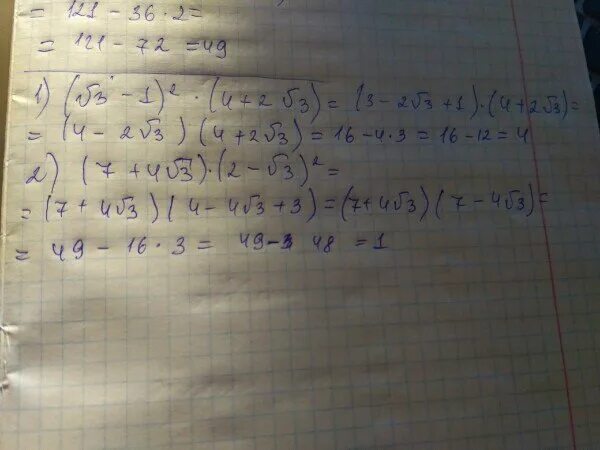 = 121 - 36 · 2 =
= 121 - 72 = 49
1) (√3 - 1)² · (4 + 2√3) = (3 - 2√3 + 1) · (4 + 2√3) =
= (4 - 2√3) (4 + 2√3) = 16 - 4 · 3 = 16 - 12 = 4
2) (7 + 4√3) · (2 - √3)² =
= (7 + 4√3) (4 - 4√3 + 3) = (7 + 4√3) (7 - 4√3) =
= 49 - 16 · 3 = 49 - 48 = 1